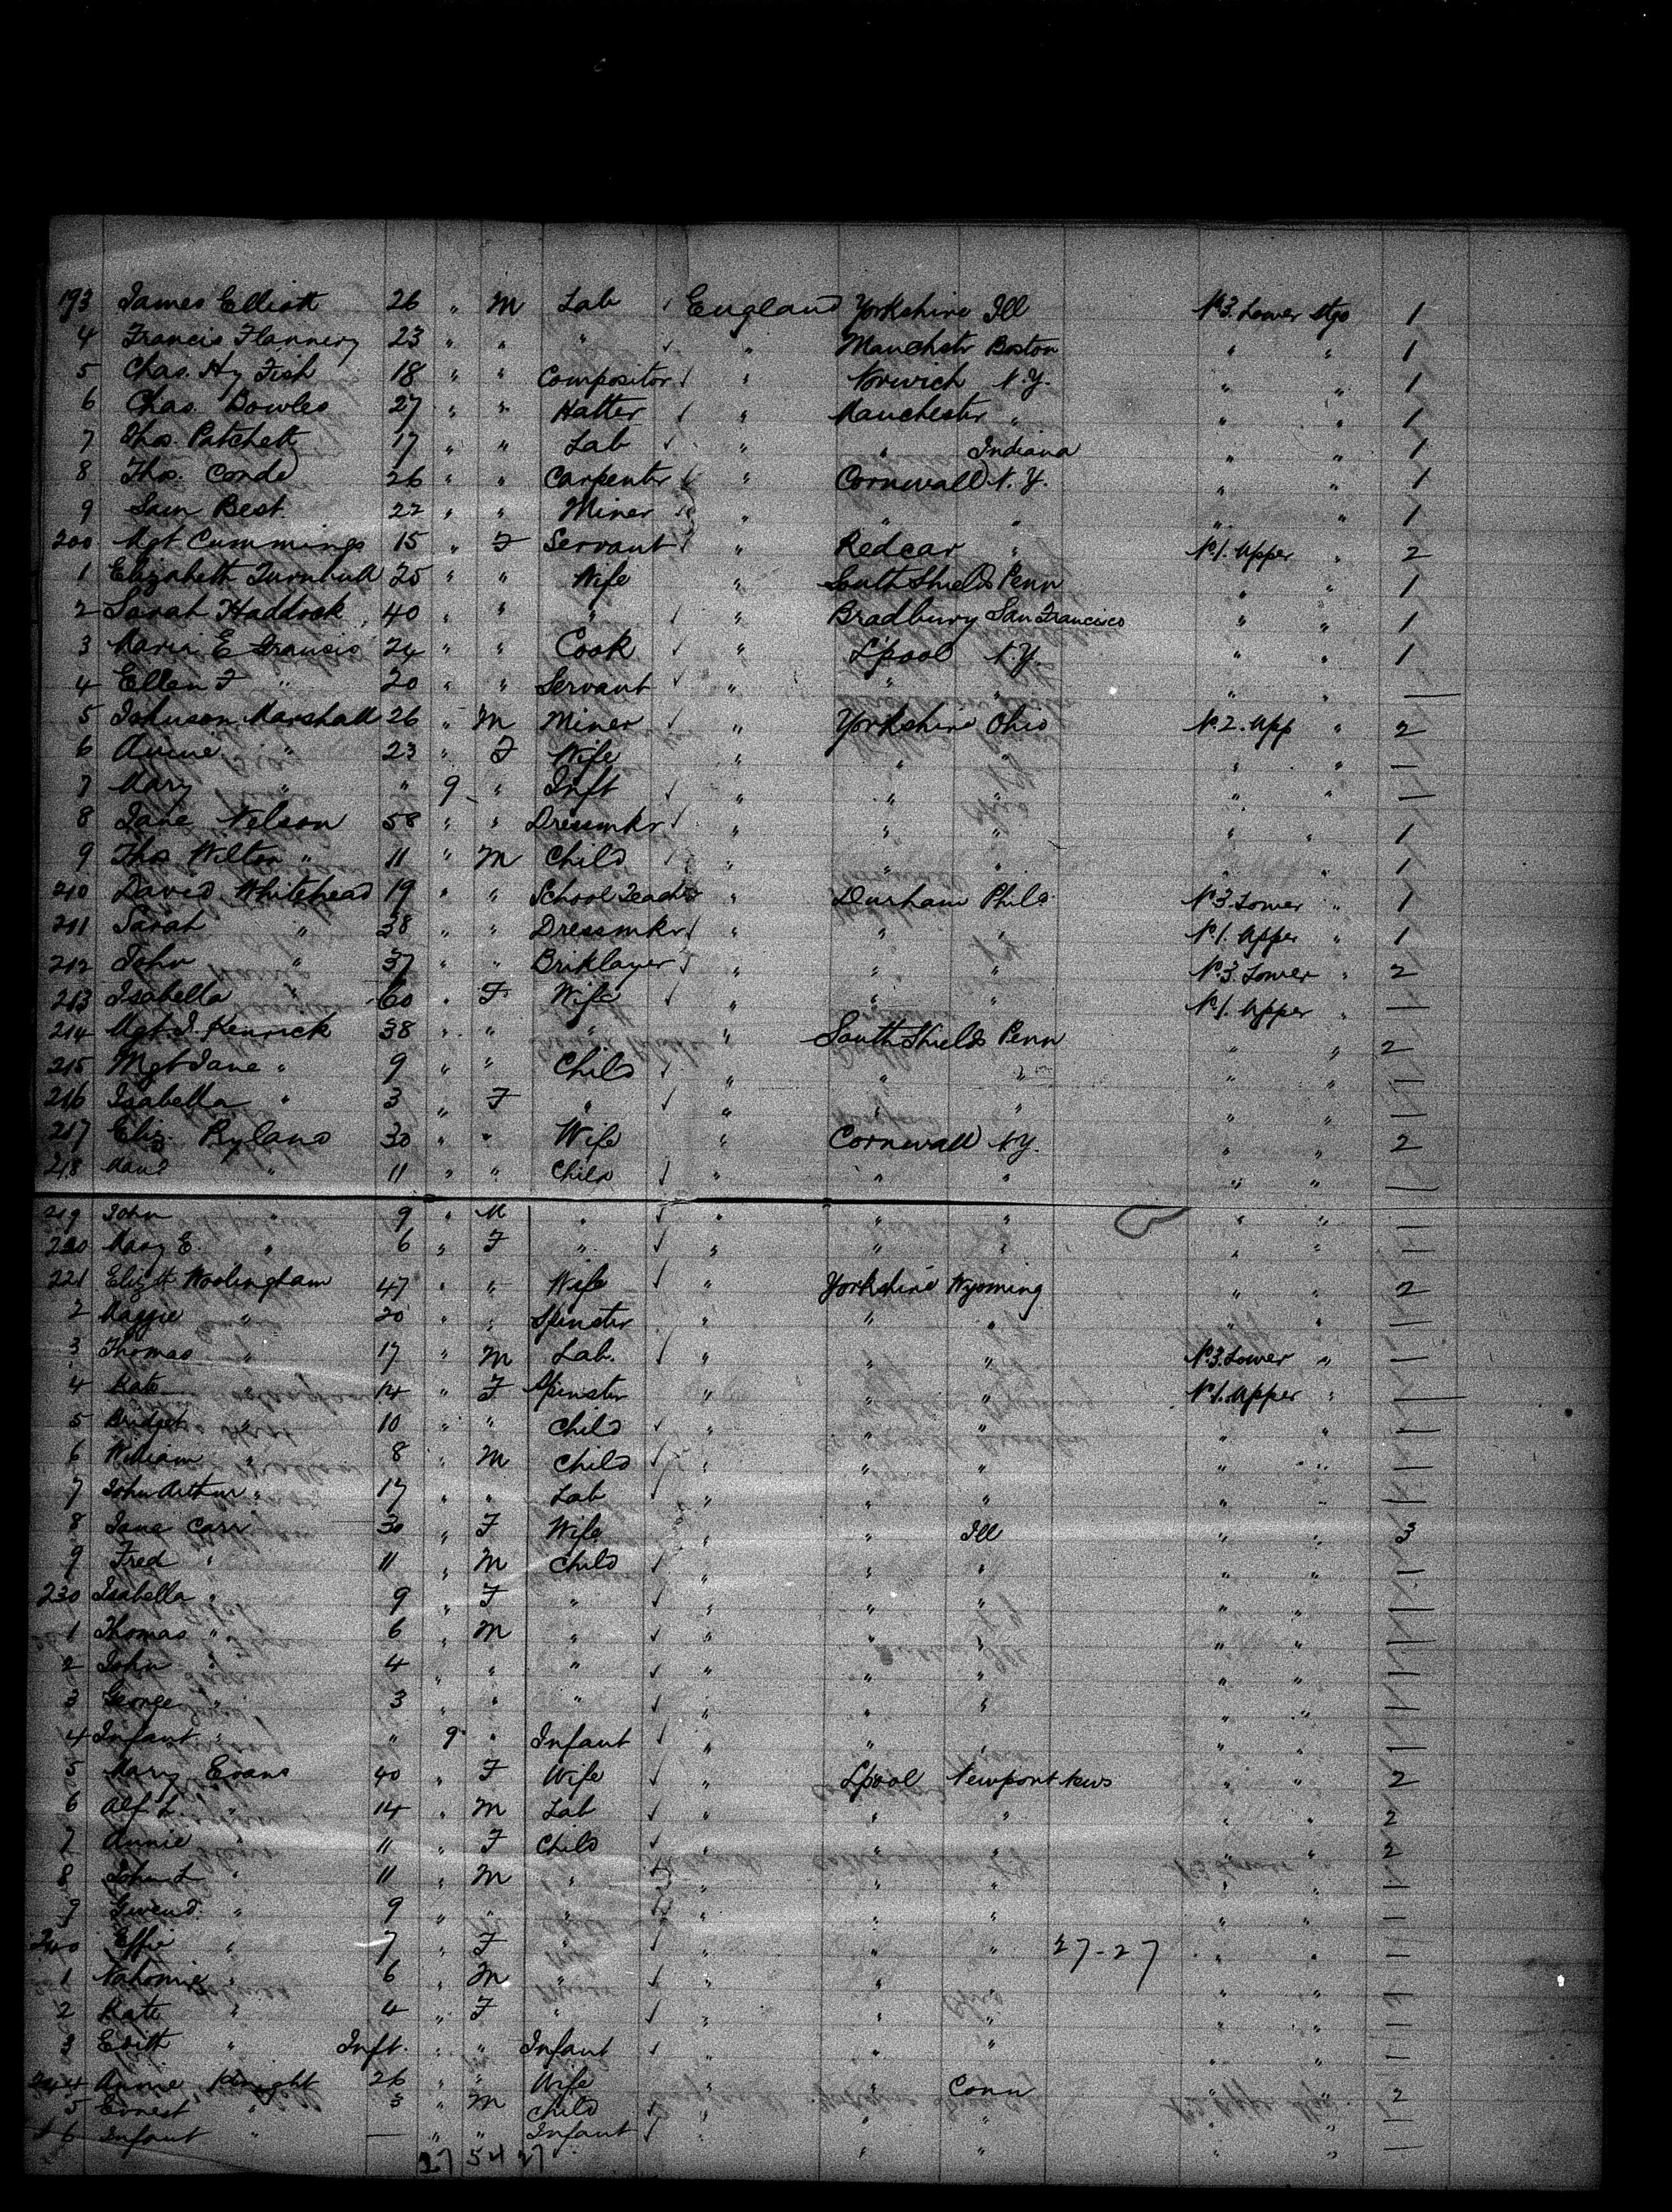 193 James Elliott 26 " M Lab England Yorkshire Ill No 3. Lower Stge 1
4 Francis Flannery 23 " " " " Manchstr Boston " " 1
5 Chas. Hy Fish 18 " " Compositor " Norwich N.Y. " " 1
6 Chas. Bowles 27 " " Hatter " Manchester " " " 1
7 Thos. Patchett 17 " " Lab " " Indiana " " 1
8 Thos. Conde 26 " " Carpenter " Cornwall N.Y. " " 1
9 Sam Best. 22 " " Miner " " " " " 1
200 Mgt Cummings 15 " F Servant " Redcar " No 1. Upper " 2
1 Elizabeth Turnbull 25 " " Wife " South Shields Penn " " 1
2 Sarah Haddock 40 " " " " Bradbury San Francisco " " 1
3 Maria E Francis 24 " " Cook " L'pool N.Y. " " 1
4 Ellen F " 20 " " Servant " " " " " —
5 Johnson Marshall 26 " M Miner " Yorkshire Ohio No 2. Upp " 2
6 Annie " 23 " F Wife " " " " " —
7 Mary " " 9 " Inft " " " " " —
8 Jane Nelson 58 " " Dressmkr " " " " " 1
9 Thos Wilton " 11 " M Child " " " " " 1
210 David Whitehead 19 " " School Teacher " Durham Phila No 3. Lower " 1
211 Sarah " 38 " " Dressmkr " " " No 1. Upper " 1
212 John " 37 " " Briklayer " " " No 3. Lower " 2
213 Isabella " 60 " F Wife " " " No 1. Upper " —
214 Mgt J. Kenrick 38 " " " " South Shields Penn " " 2
215 Mgt Jane " 9 " " Child " " " " " —
216 Isabella " 3 " F " " " " " " —
217 Eliz. Ryland 30 " " Wife " Cornwall N.Y. " " 2
218 Maud " 11 " " Child " " " " " —
219 John " 9 " M " " " " " " —
220 Mary E. " 6 " F " " " " " " —
221 Elizth Woolingham 47 " " Wife " Yorkshire Wyoming " " 2
2 Maggie " 20 " " Spinster " " " " " —
3 Thomas " 17 " M Lab. " " " No 3. Lower " —
4 Kate " 14 " F Spinster " " " No 1. Upper " —
5 Bridget " 10 " " Child " " " " " —
6 William " 8 " M Child " " " " " —
7 John Arthur " 17 " " Lab " " " " " —
8 Jane Carr 30 " F Wife " " Ill " " 3
9 Fred " 11 " M Child " " " " " —
230 Isabella " 9 " F " " " " " " —
1 Thomas " 6 " M " " " " " " —
2 John " 4 " " " " " " " " —
3 George " 3 " " " " " " " " —
4 Infant " " 9 " Infant " " " " " —
5 Mary Evans 40 " F Wife " L'pool Newport News " " 2
6 Alf L. " 14 " M Lab " " " " " 2
7 Annie " 11 " F Child " " " " " 2
8 John L " 11 " M " " " " " " —
9 Gwend. " 9 " " " " " " " " —
240 Effie " 7 " F " " " " 27-27 " " —
1 Nahomie " 6 " M " " " " " " —
2 Kate " 4 " F " " " " " " —
3 Edith " Inft. " " Infant " " " " " —
244 Annie Knight 26 " " Wife " " Conn " " 2
5 Ernest " 3 " M Child " " " " " —
6 Infant " — " " Infant " " " " " —
27 54 27